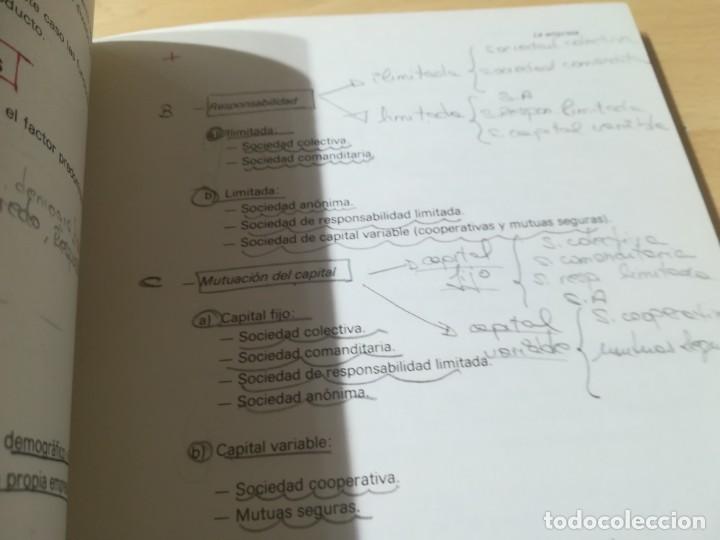 te caso las
ducto.
S
el factor predom
demográfico
propia empre
La empresa
+
B — Responsabilidad
ilimitada
sociedad colectiva
sociedad comandita
limitada
S.A
S. respon limitada
S. capital variable
a) Ilimitada:
— Sociedad colectiva.
— Sociedad comanditaria.
b) Limitada:
— Sociedad anónima.
— Sociedad de responsabilidad limitada.
— Sociedad de capital variable (cooperativas y mutuas seguras).
C — Mutuación del capital
capital
fijo
S. colectiva
S. comanditaria
S. resp limitada
S.A
capital
variable
S. cooperativ
mutuas segu
a) Capital fijo:
— Sociedad colectiva.
— Sociedad comanditaria.
— Sociedad de responsabilidad limitada.
— Sociedad anónima.
b) Capital variable:
— Sociedad cooperativa.
— Mutuas seguras.
todocoleccion.net